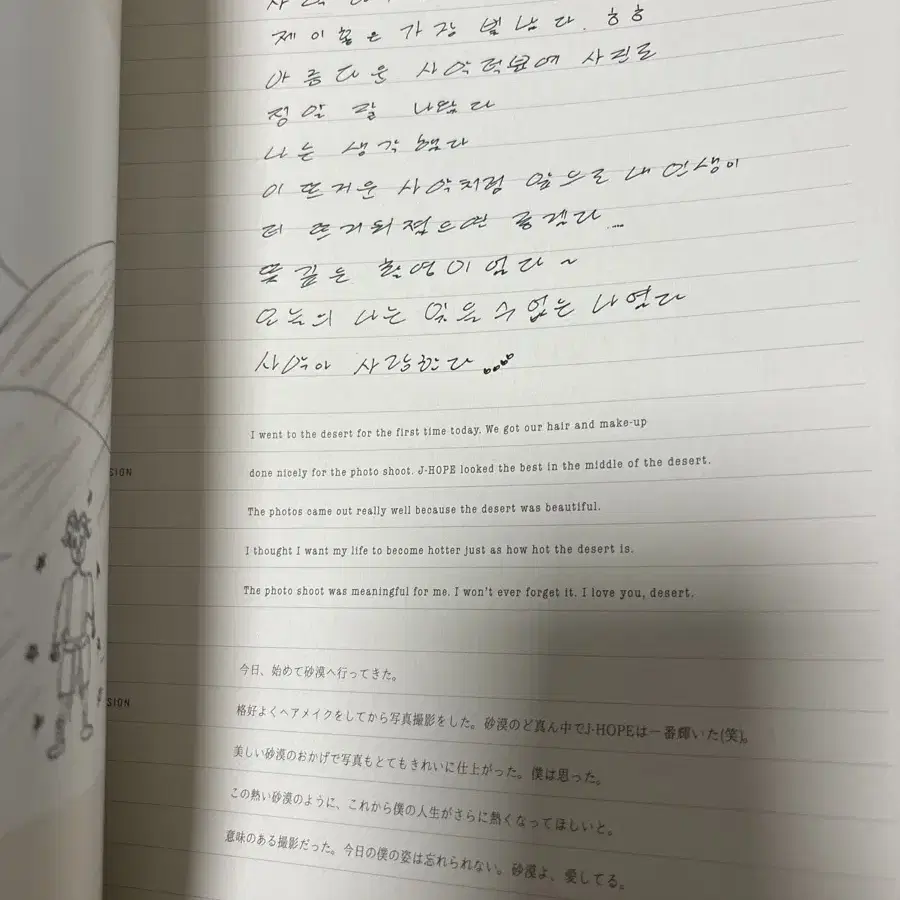 제이홉은 가장 빛났다. ㅎㅎ
아름다운 사막덕분에 사진도
정말 잘 나왔다
나는 생각했다
이 뜨거운 사막처럼 앞으로 내 인생이
더 뜨거워졌으면 좋겠다...
뜻깊은 촬영이었다~
오늘의 나는 잊을 수 없는 나였다
사막아 사랑한다
I went to the desert for the first time today. We got our hair and make-up
done nicely for the photo shoot. J-HOPE looked the best in the middle of the desert.
The photos came out really well because the desert was beautiful.
I thought I want my life to become hotter just as how hot the desert is.
The photo shoot was meaningful for me. I won't ever forget it. I love you, desert.
SION
今日、始めて砂漠へ行ってきた。
格好よくヘアメイクをしてから写真撮影をした。砂漠のど真ん中でJ-HOPEは一番輝いた(笑)。
美しい砂漠のおかげで写真もとてもきれいに仕上がった。僕は思った。
この熱い砂漠のように、これから僕の人生がさらに熱くなってほしいと。
意味のある撮影だった。今日の僕の姿は忘れられない。砂漠よ、愛してる。
SION